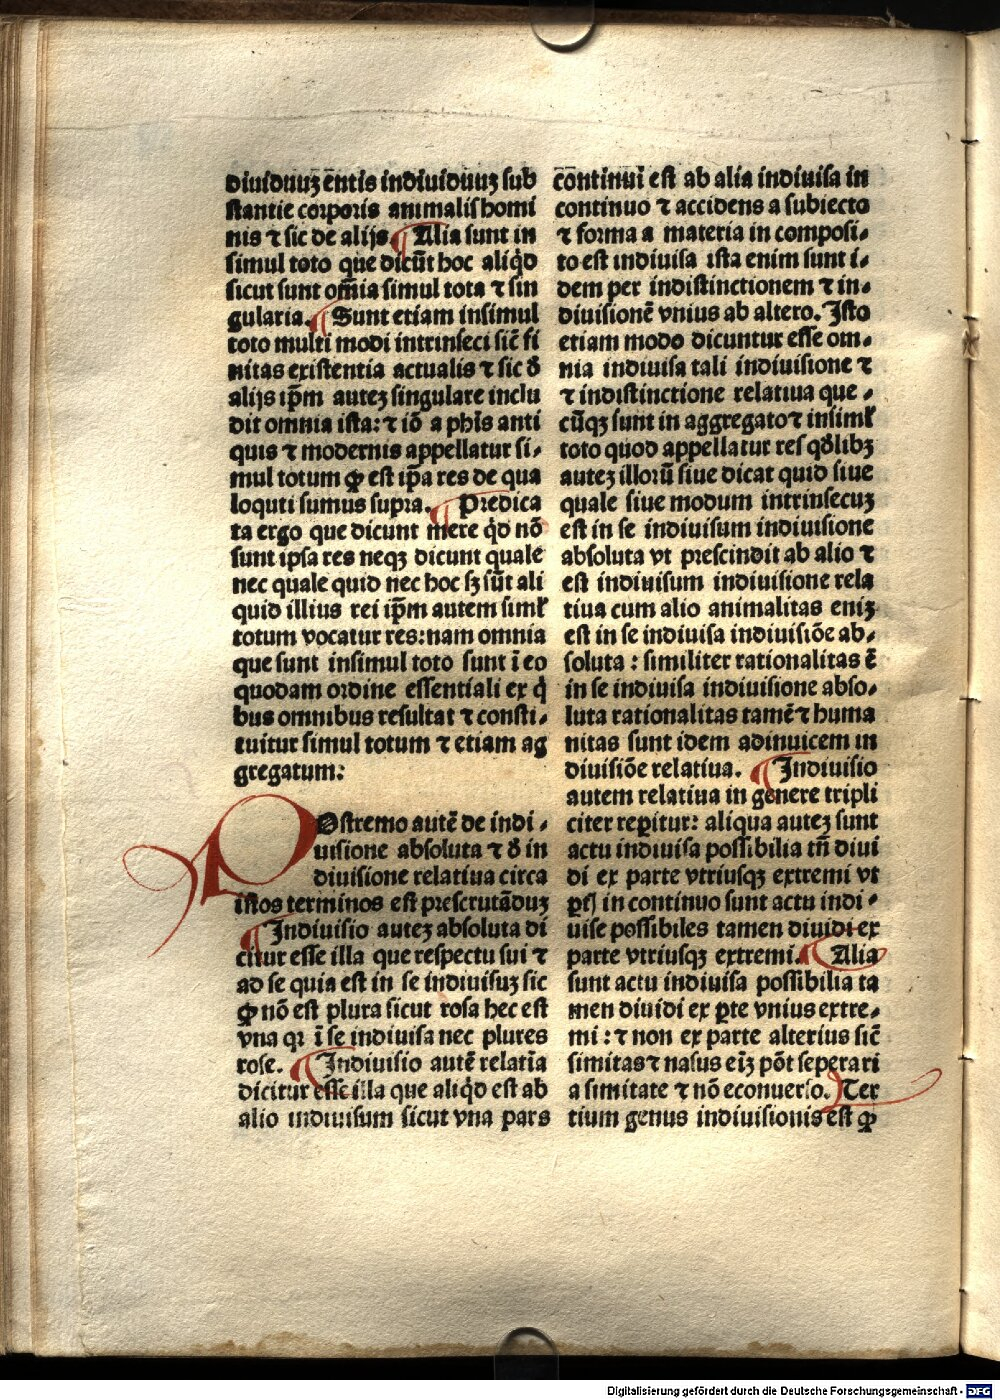 diuiduuꝫ entis indiuiduuꝫ sub
stantie corporis animalis homi
nis ⁊ sic de alijs. ¶ Alia sunt in
simul toto que dicūt hoc aliq̇d
sicut sunt om̄ia simul tota ⁊ sin
gularia. ¶ Sunt etiam insimul
toto multi modi intrinseci sic̄ fi
nitas existentia actualis ⁊ sic ꝺ̄
alijs ip̄m autez singulare inclu
dit omnia ista: ⁊ iō a ph̄is anti
quis ⁊ modernis appellatur si⸗
mul totum ꝙ est ip̄a res de qua
loquti sumus supra. ¶ Predica
ta ergo que dicunt mere q̇d nō
sunt ipsa res neqꝫ dicunt quale
nec quale quid nec hoc sꝫ sūt ali
quid illius rei ip̄m autem siml̉
totum vocatur res: nam omnia
que sunt insimul toto sunt ī eo
quodam ordine essentiali ex q̇
bus omnibus resultat ⁊ consti⸗
tuitur simul totum ⁊ etiam ag
gregatum:
POstremo autē de indi⸗
uisione absoluta ⁊ ꝺ̄ in
diuisione relatiua circa
istos terminos est prescrutāduꝫ
¶ Indiuisio autez absoluta di
citur esse illa que respectu sui ⁊
ad se quia est in se indiuisuꝫ sic
ꝙ nō est plura sicut rosa hec est
vna qꝛ ī se indiuisa nec plures
rose. ¶ Indiuisio autē relatīa
dicitur esse illa que aliq̇d est ab
alio indiuisum sicut vna pars
continui est ab alia indiuisa in
continuo ⁊ accidens a subiecto
⁊ forma a materia in composi⸗
to est indiuisa ista enim sunt i⸗
dem per indistinctionem ⁊ in⸗
diuisionē vnius ab altero. Isto
etiam modo dicuntur esse om⸗
nia indiuisa tali indiuisione ⁊
⁊ indistinctione relatiua que⸗
cūqꝫ sunt in aggregato ⁊ insiml̉
toto quod appellatur res qd̄libꝫ
autez illorū siue dicat quid siue
quale siue modum intrinsecuꝫ
est in se indiuisum indiuisione
absoluta vt prescindit ab alio ⁊
est indiuisum indiuisione rela
tiua cum alio animalitas eniꝫ
est in se indiuisa indiuisiōe ab⸗
soluta: similiter rationalitas ē
in se indiuisa indiuisione abso⸗
luta rationalitas tamē ⁊ huma
nitas sunt idem adinuicem in
diuisiōe relatiua. ¶ Indiuisio
autem relatiua in genere tripli
citer reꝑitur: aliqua autez sunt
actu indiuisa possibilia tn̄ diui
di ex parte vtriusqꝫ extremi vt
ꝑtes in continuo sunt actu indi⸗
uise possibiles tamen diuidi ex
parte vtriusqꝫ extremi. ¶ Alia
sunt actu indiuisa possibilia ta
men diuidi ex ꝑte vnius extre⸗
mi: ⁊ non ex parte alterius sic̄
simitas ⁊ nasus eiꝫ pōt seperari
a simitate ⁊ nō econuerso. Ter
tium genus indiuisionis est ꝙ
Digitalisierung gefördert durch die Deutsche Forschungsgemeinschaft - DFG